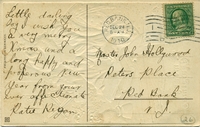 Little darling
I wish you
a very merry
Xmas and a
long happy and
prosperous New
Year from your
ever aff. friend
Katie Regan
Master John Hollywood
Peters Place
Red Bank
N.J.